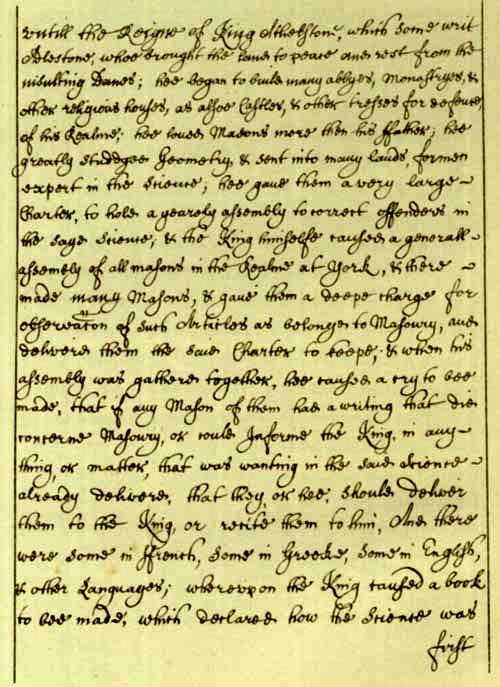 untill the Reigne of King Athelstone, which some writ
Adlestone, whoe brought the land to peace and rest from the
insulting Danes; hee began to build many abbyes, Monestryes, &
other religious houses, as alsoe Castles, & other tresses for defence,
of his Realme; hee loved Masons more then his ffather; hee
greatly studdyed Geometry, & sent into many lands, for men
expert in the science; hee gave them a very large
Charter, to hold a yearely assembly to correct offenders in
the sayd science; & the King himselfe caused a generall
assembly of all masons in the Realme at York, & there
made many Masons, & gave them a deepe charge for
observacon of such Articles as belonge to Masonry, and
delivered them the said Charter to keepe; & when his
assembly was gathered together, hee caused a cry to bee
made, that if any Mason of them had a writing that did
concerne Masonry, or could Informe the King, in any
thing, or matter, that was wanting in the said science
already delivered, that they, or hee, should deliver
them to the King, or recite them to him, And there
were some in ffrench, some in Greeke, some in English,
& other Languages; whereupon the King caused a book
to bee made, which declared how the science was
first